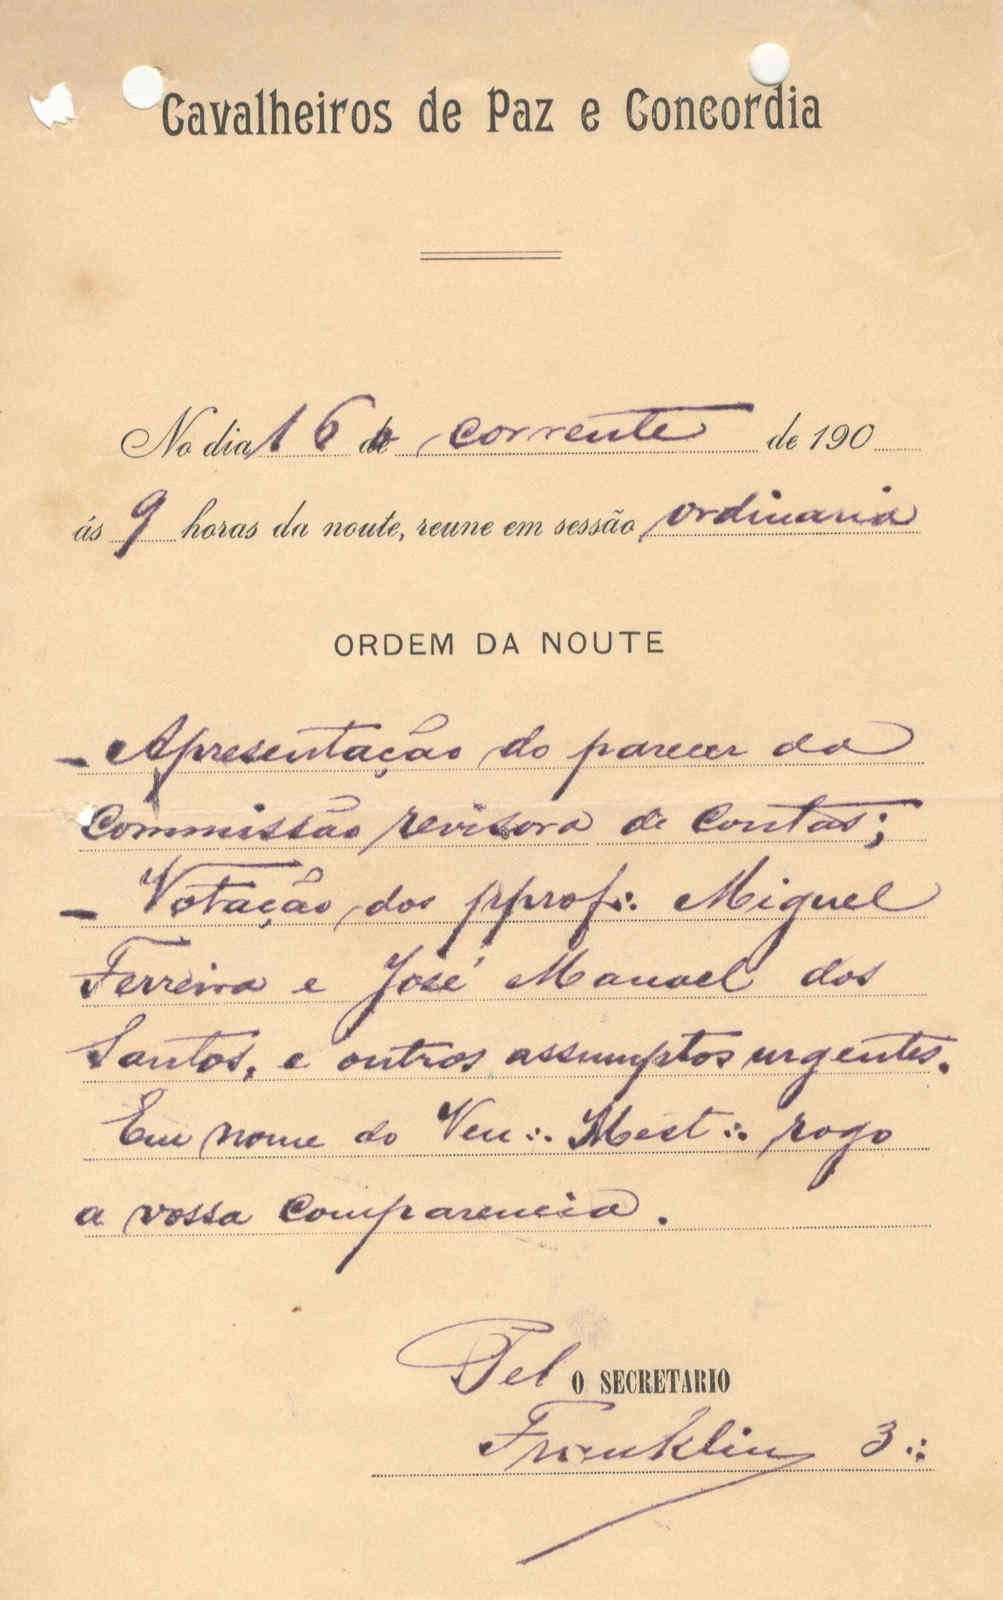 Cavalheiros de Paz e Concordia
No dia 16 do corrente de 190
ás 9 horas da noute, reune em sessão ordinaria
ORDEM DA NOUTE
- Apresentação do parecer da
Commissão revisora de contas;
- Votação dos pprof∴ Miguel
Ferreira e José Manoel dos
Santos, e outros assumptos urgentes.
Em nome do Ven∴ Mest∴ rogo
a vossa comparencia.
Pel O SECRETARIO
Franklin 3∴